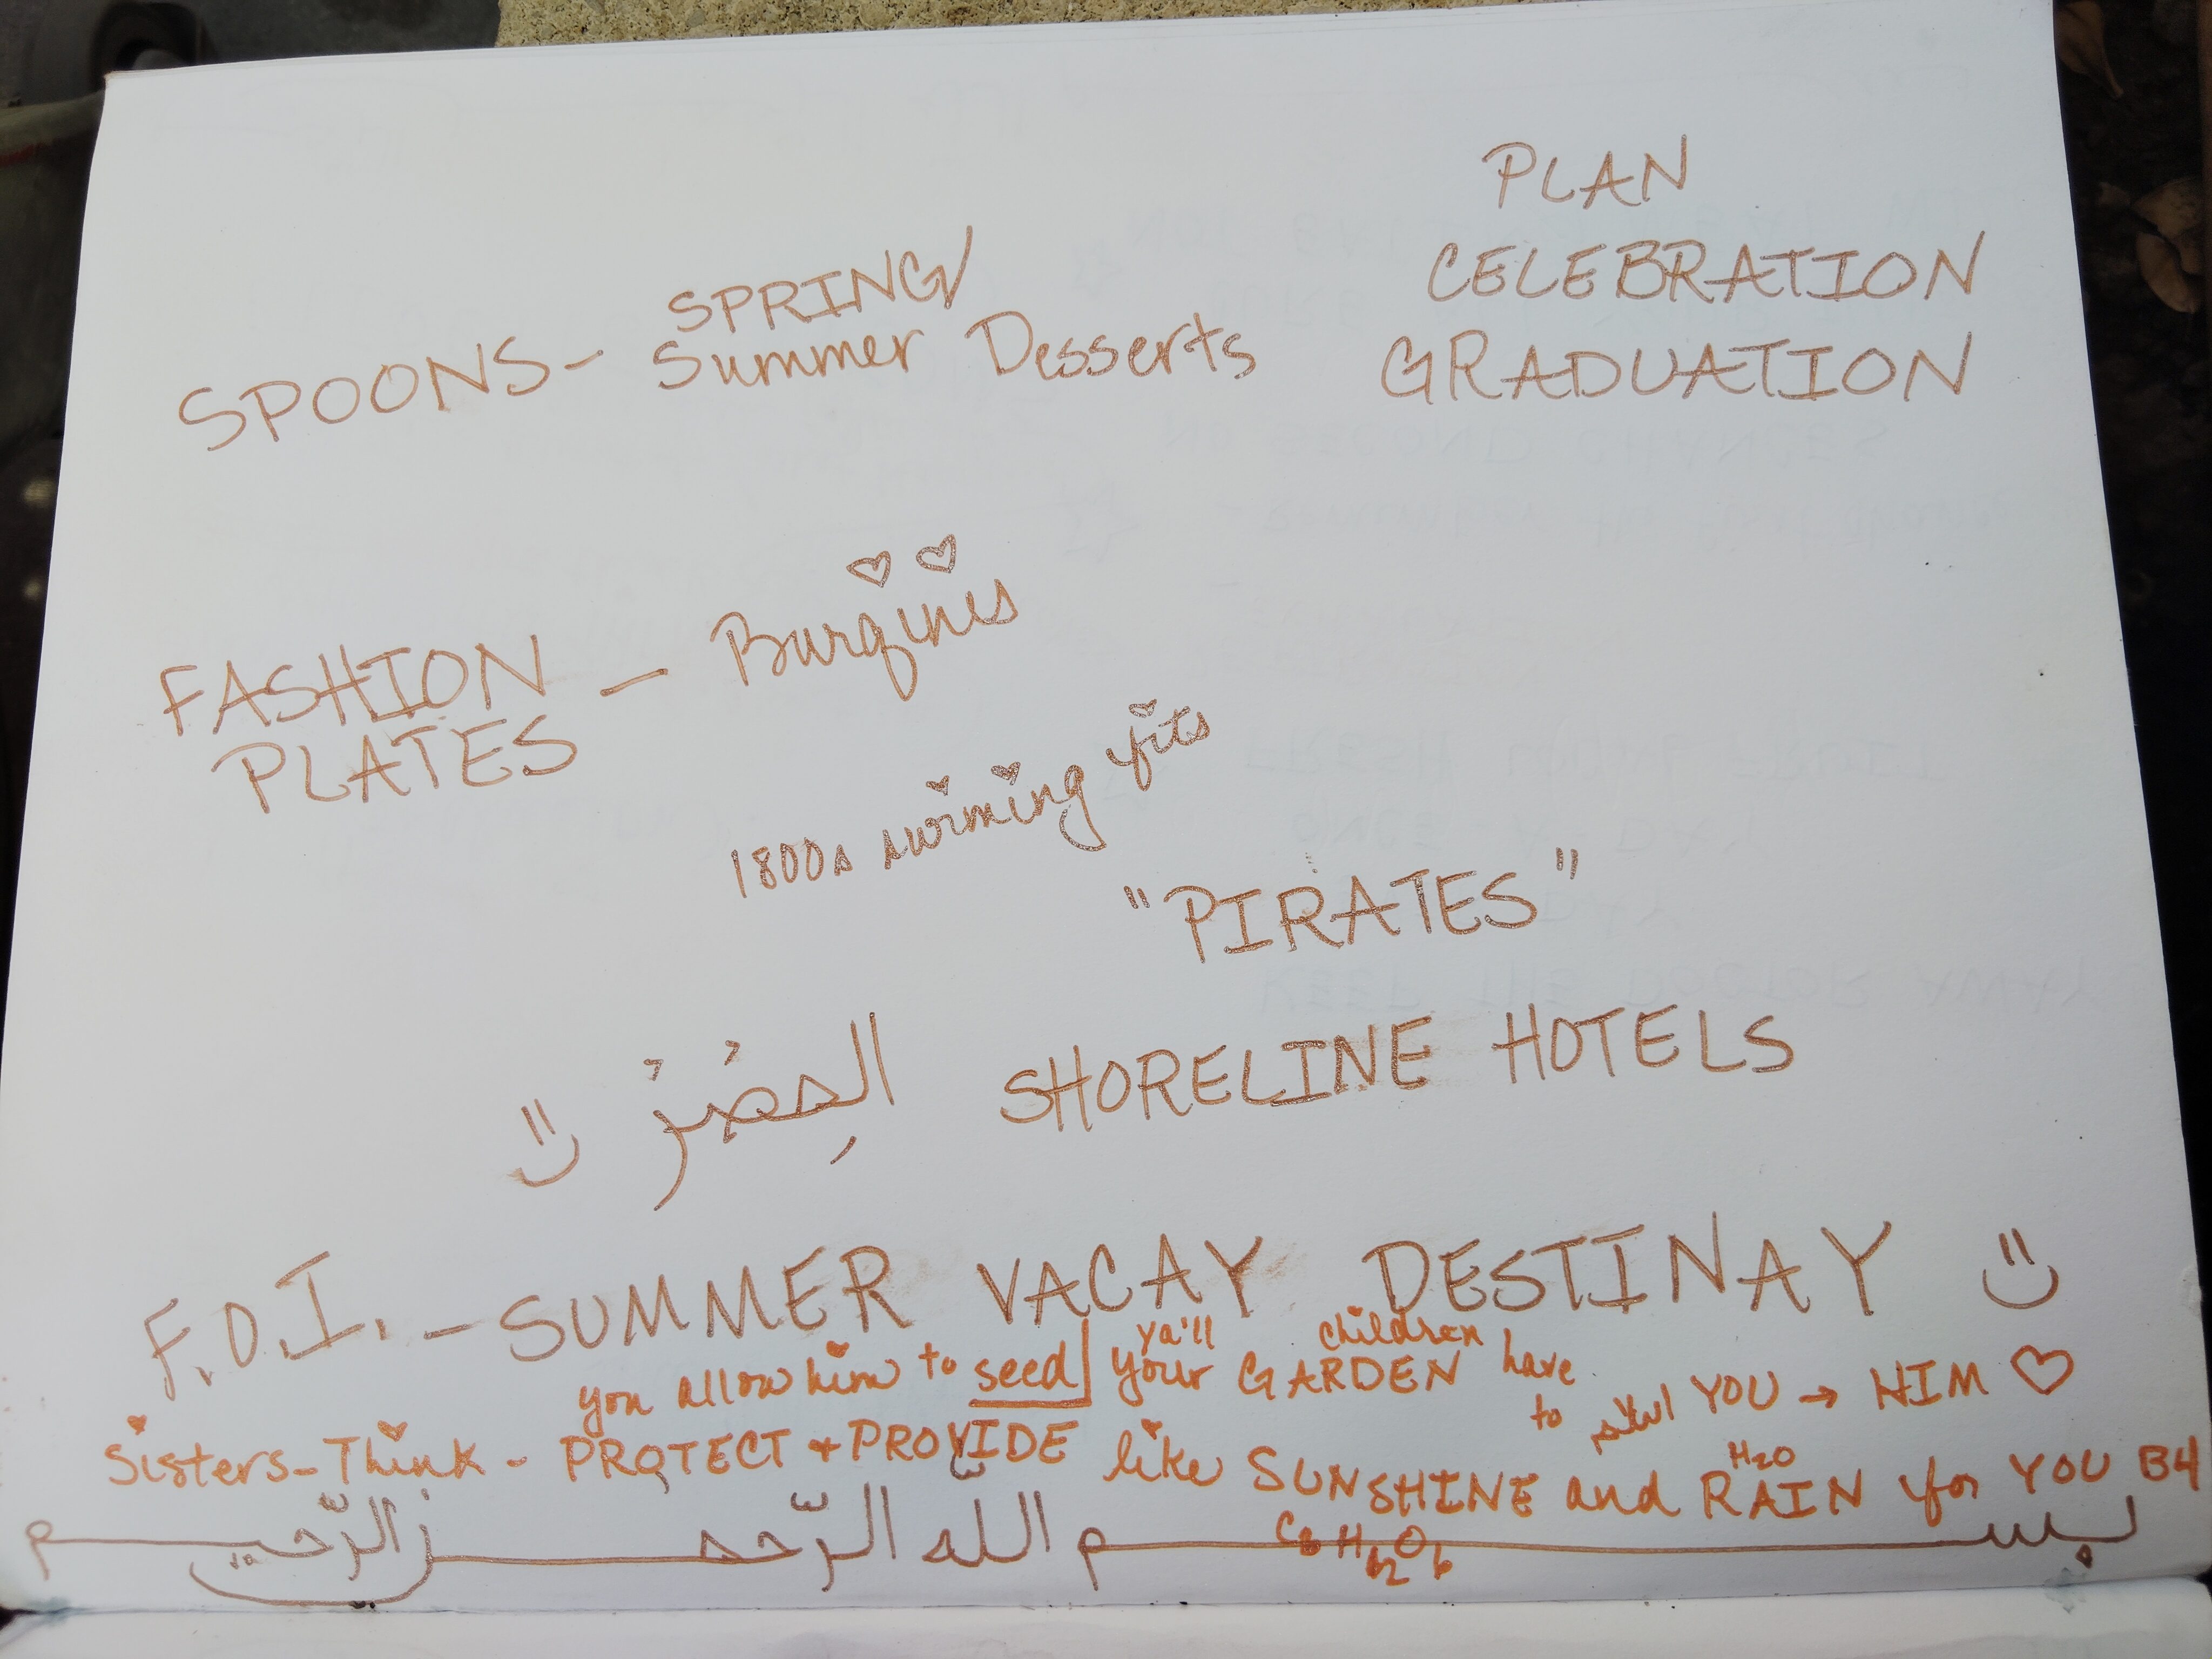 PLAN
CELEBRATION
GRADUATION
SPRING/
SPOONS- Summer Desserts
FASHION - Burqinis
PLATES
1800s swiming fits
"PIRATES"
SHORELINE HOTELS
F.O.I. - SUMMER VACAY DESTINAY
ya'll children
you allow him to seed your GARDEN have
to YOU → HIM
Sisters-Think - PROTECT + PROVIDE like SUNSHINE and RAIN for YOU B4
H2O
بسم الله الرّحمن الرّحيم
C6H12O6